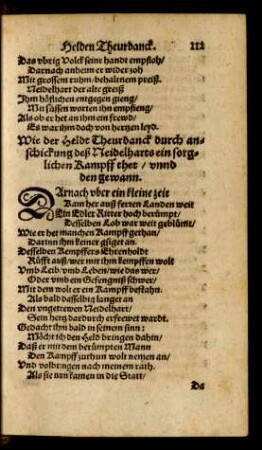 Helden Theurdanck. 212
Das vbrig Volck seinr handt empfloh/
Darnach anheim er wider zoh
Mit grossem ruhm/ behaltnem preiß.
Neidelhart der alte greiß
Ihm höflichen entgegen gieng/
Mit süssen worten ihn empfieng/
Als ob er het an ihm ein frewd/
Es war ihm doch von hertzen leyd.
Wie der Heldt Theurdanck durch an-
schickung deß Neidelharts ein sorg-
lichen Kampff thet / vnnd
den gewann.
DArnach vber ein kleine zeit
Kam her auß fernen Landen weit
Ein Edler Ritter hoch berümpt/
Desselben Lob war weit geblümt/
Wie er het manchen Kampff gethan/
Darinn ihm keiner gsiget an.
Desselben Kempffers Ehrenholdt
Rüfft auß/ wer mit ihm kempffen wolt
Vmb Leib/ vmb Leben/ wie das wer/
Oder vmb ein Gefengniß schwer/
Mit dem wolt er ein Kampff bestahn.
Als bald dasselbig langet an
Den vngetrewen Neidelhart/
Sein hertz dardurch erfrewet wardt.
Gedacht ihm bald in seinem sinn:
Möcht ich den Held bringen dahin/
Daß er mit dem berümpten Mann
Den Kampff zuthun wolt nemen an/
Vnd volbringen nach meinem rath.
Als sie nun kamen in die Statt/
Da